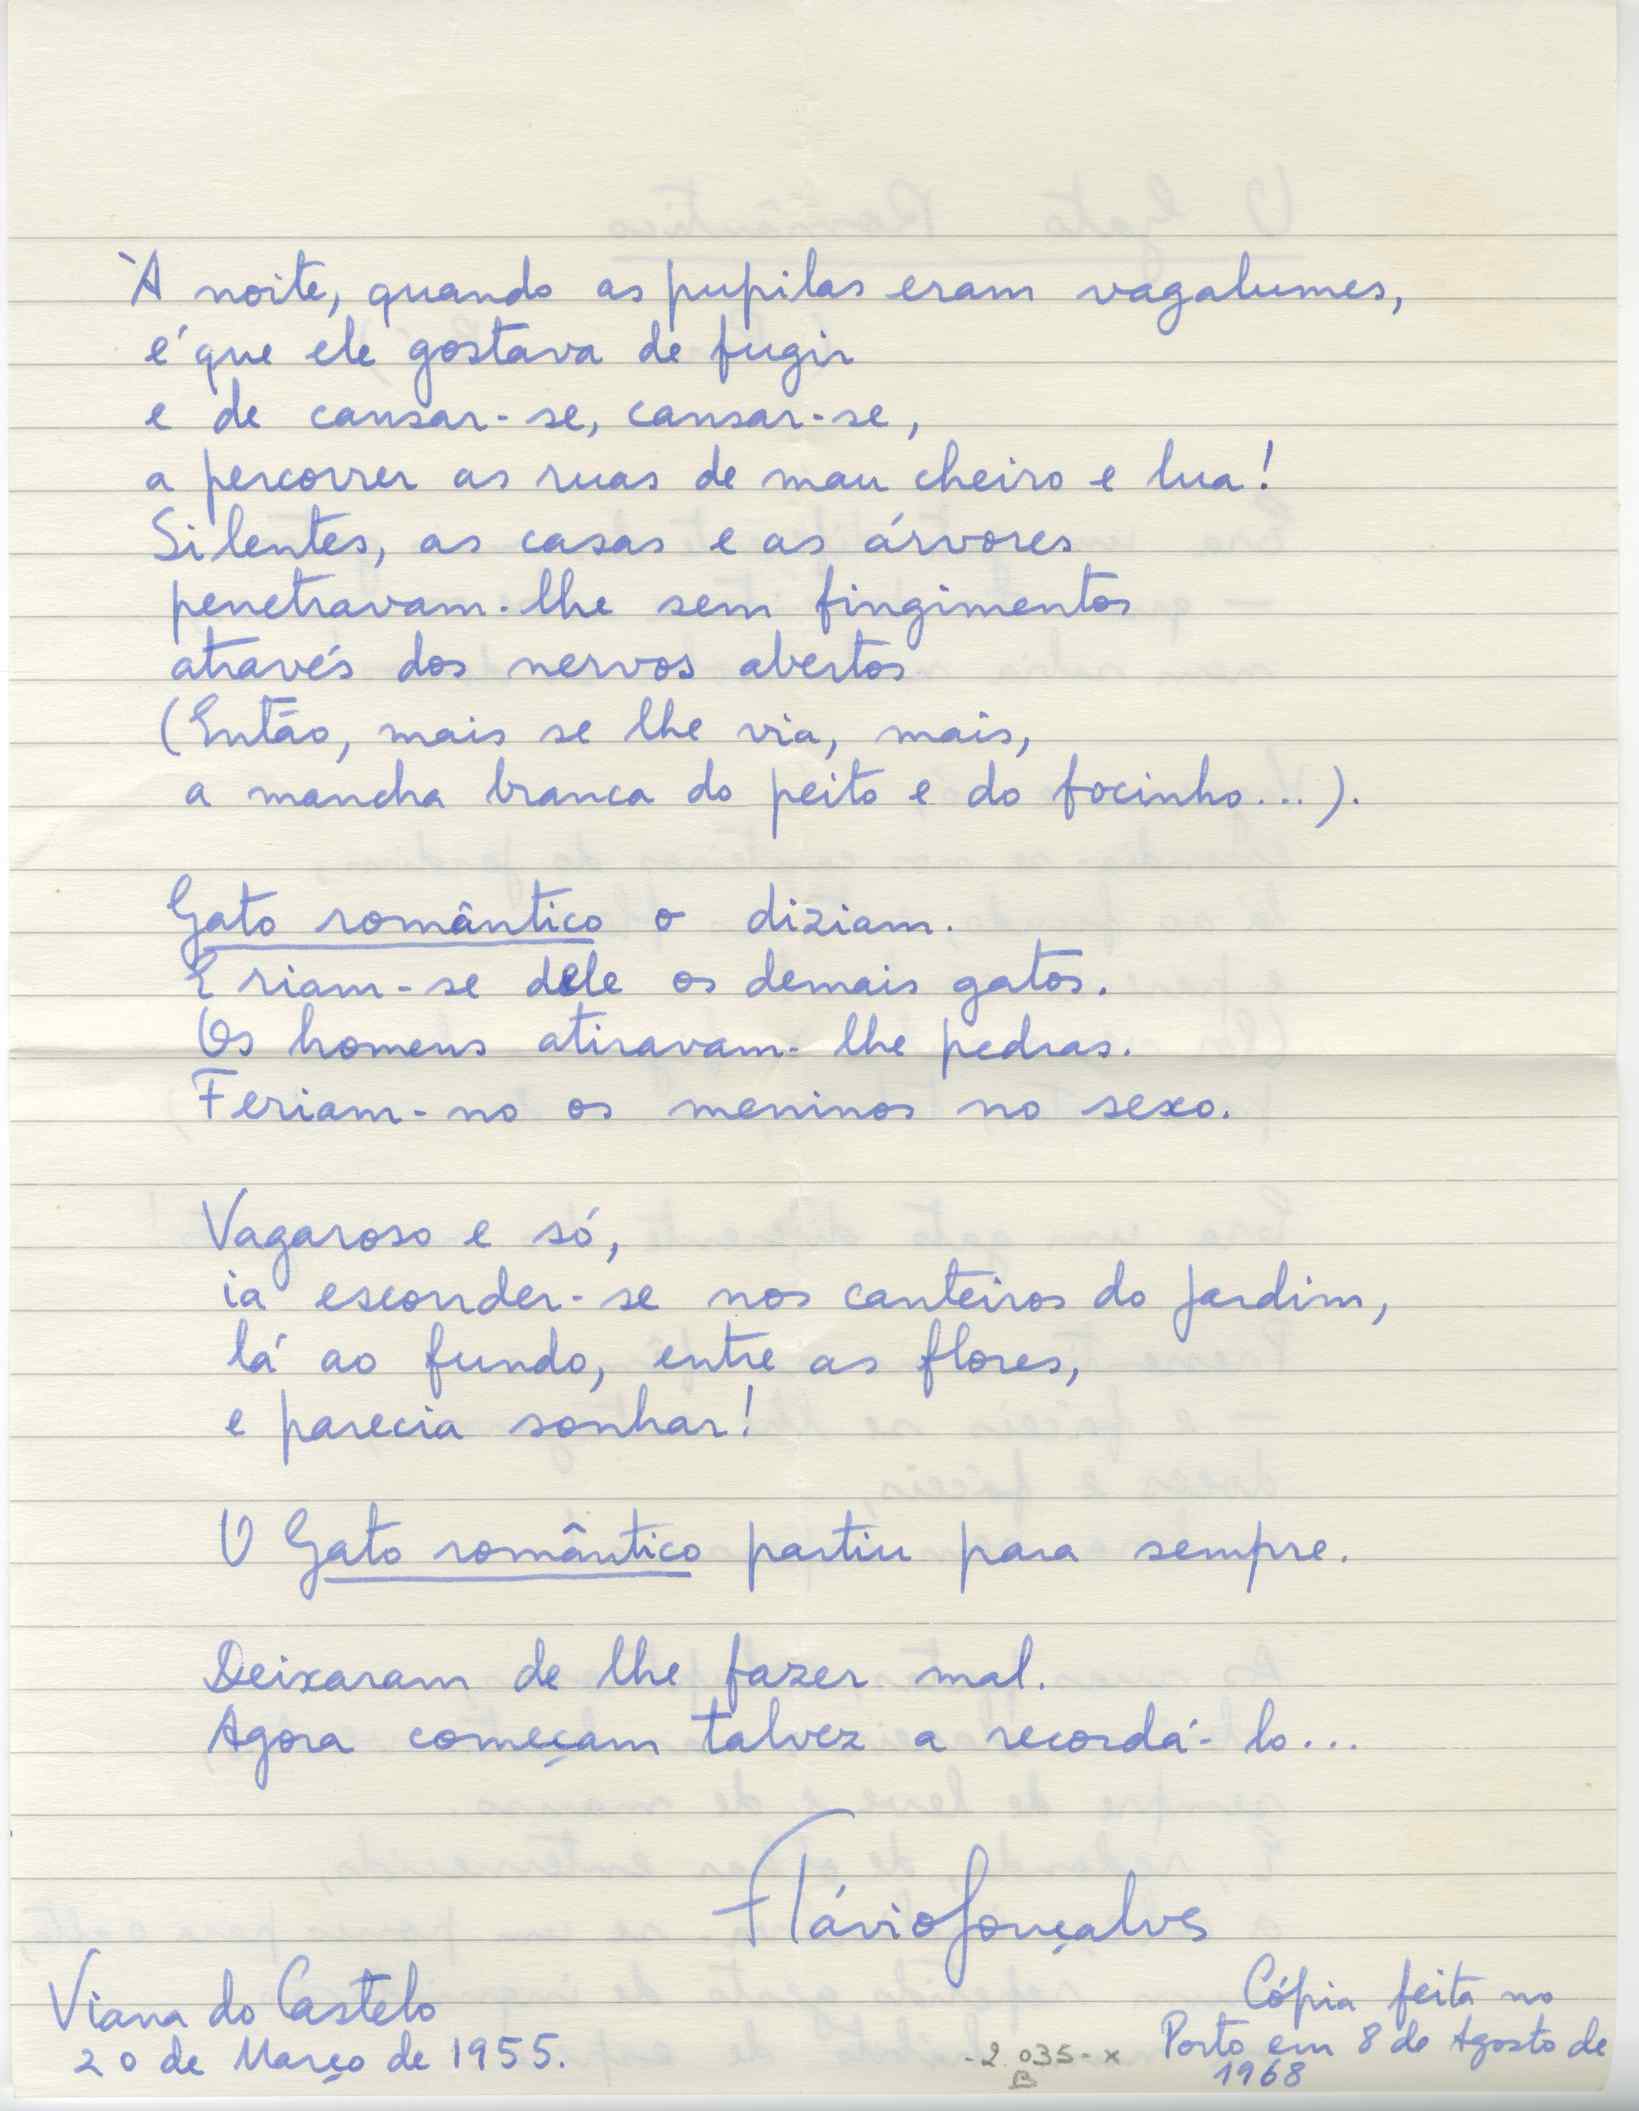 À noite, quando as pupilas eram vagalumes,
é que ele gostava de fugir
e de cansar-se, cansar-se,
a percorrer as ruas de mau cheiro e lua!
Silentes, as casas e as árvores
penetravam-lhe sem fingimentos
através dos nervos abertos
(Então, mais se lhe via, mais,
a mancha branca do peito e do focinho...).
Gato romântico o diziam.
E riam-se dele os demais gatos.
Os homens atiravam-lhe pedras.
Feriam-no os meninos no sexo.
Vagaroso e só,
ia esconder-se nos canteiros do jardim,
lá ao fundo, entre as flores,
e parecia sonhar!
O Gato romântico partiu para sempre.
Deixaram de lhe fazer mal.
Agora começam talvez a recordá-lo...
Flávio Gonçalves
Viana do Castelo
20 de Março de 1955.
-2.035-x
B
Cópia feita no
Porto em 8 de Agosto de
1968